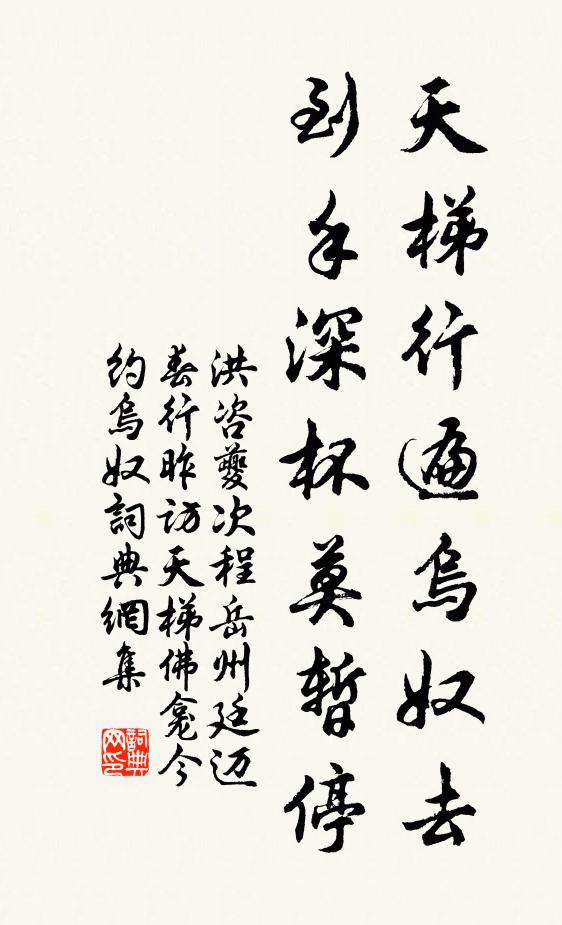 天梯行遍烏奴去
到手深杯莫暫停
洪咨夔次程岳州廷迈
春行昨访天梯佛龛今
约烏奴詞典網集
詞典
网印